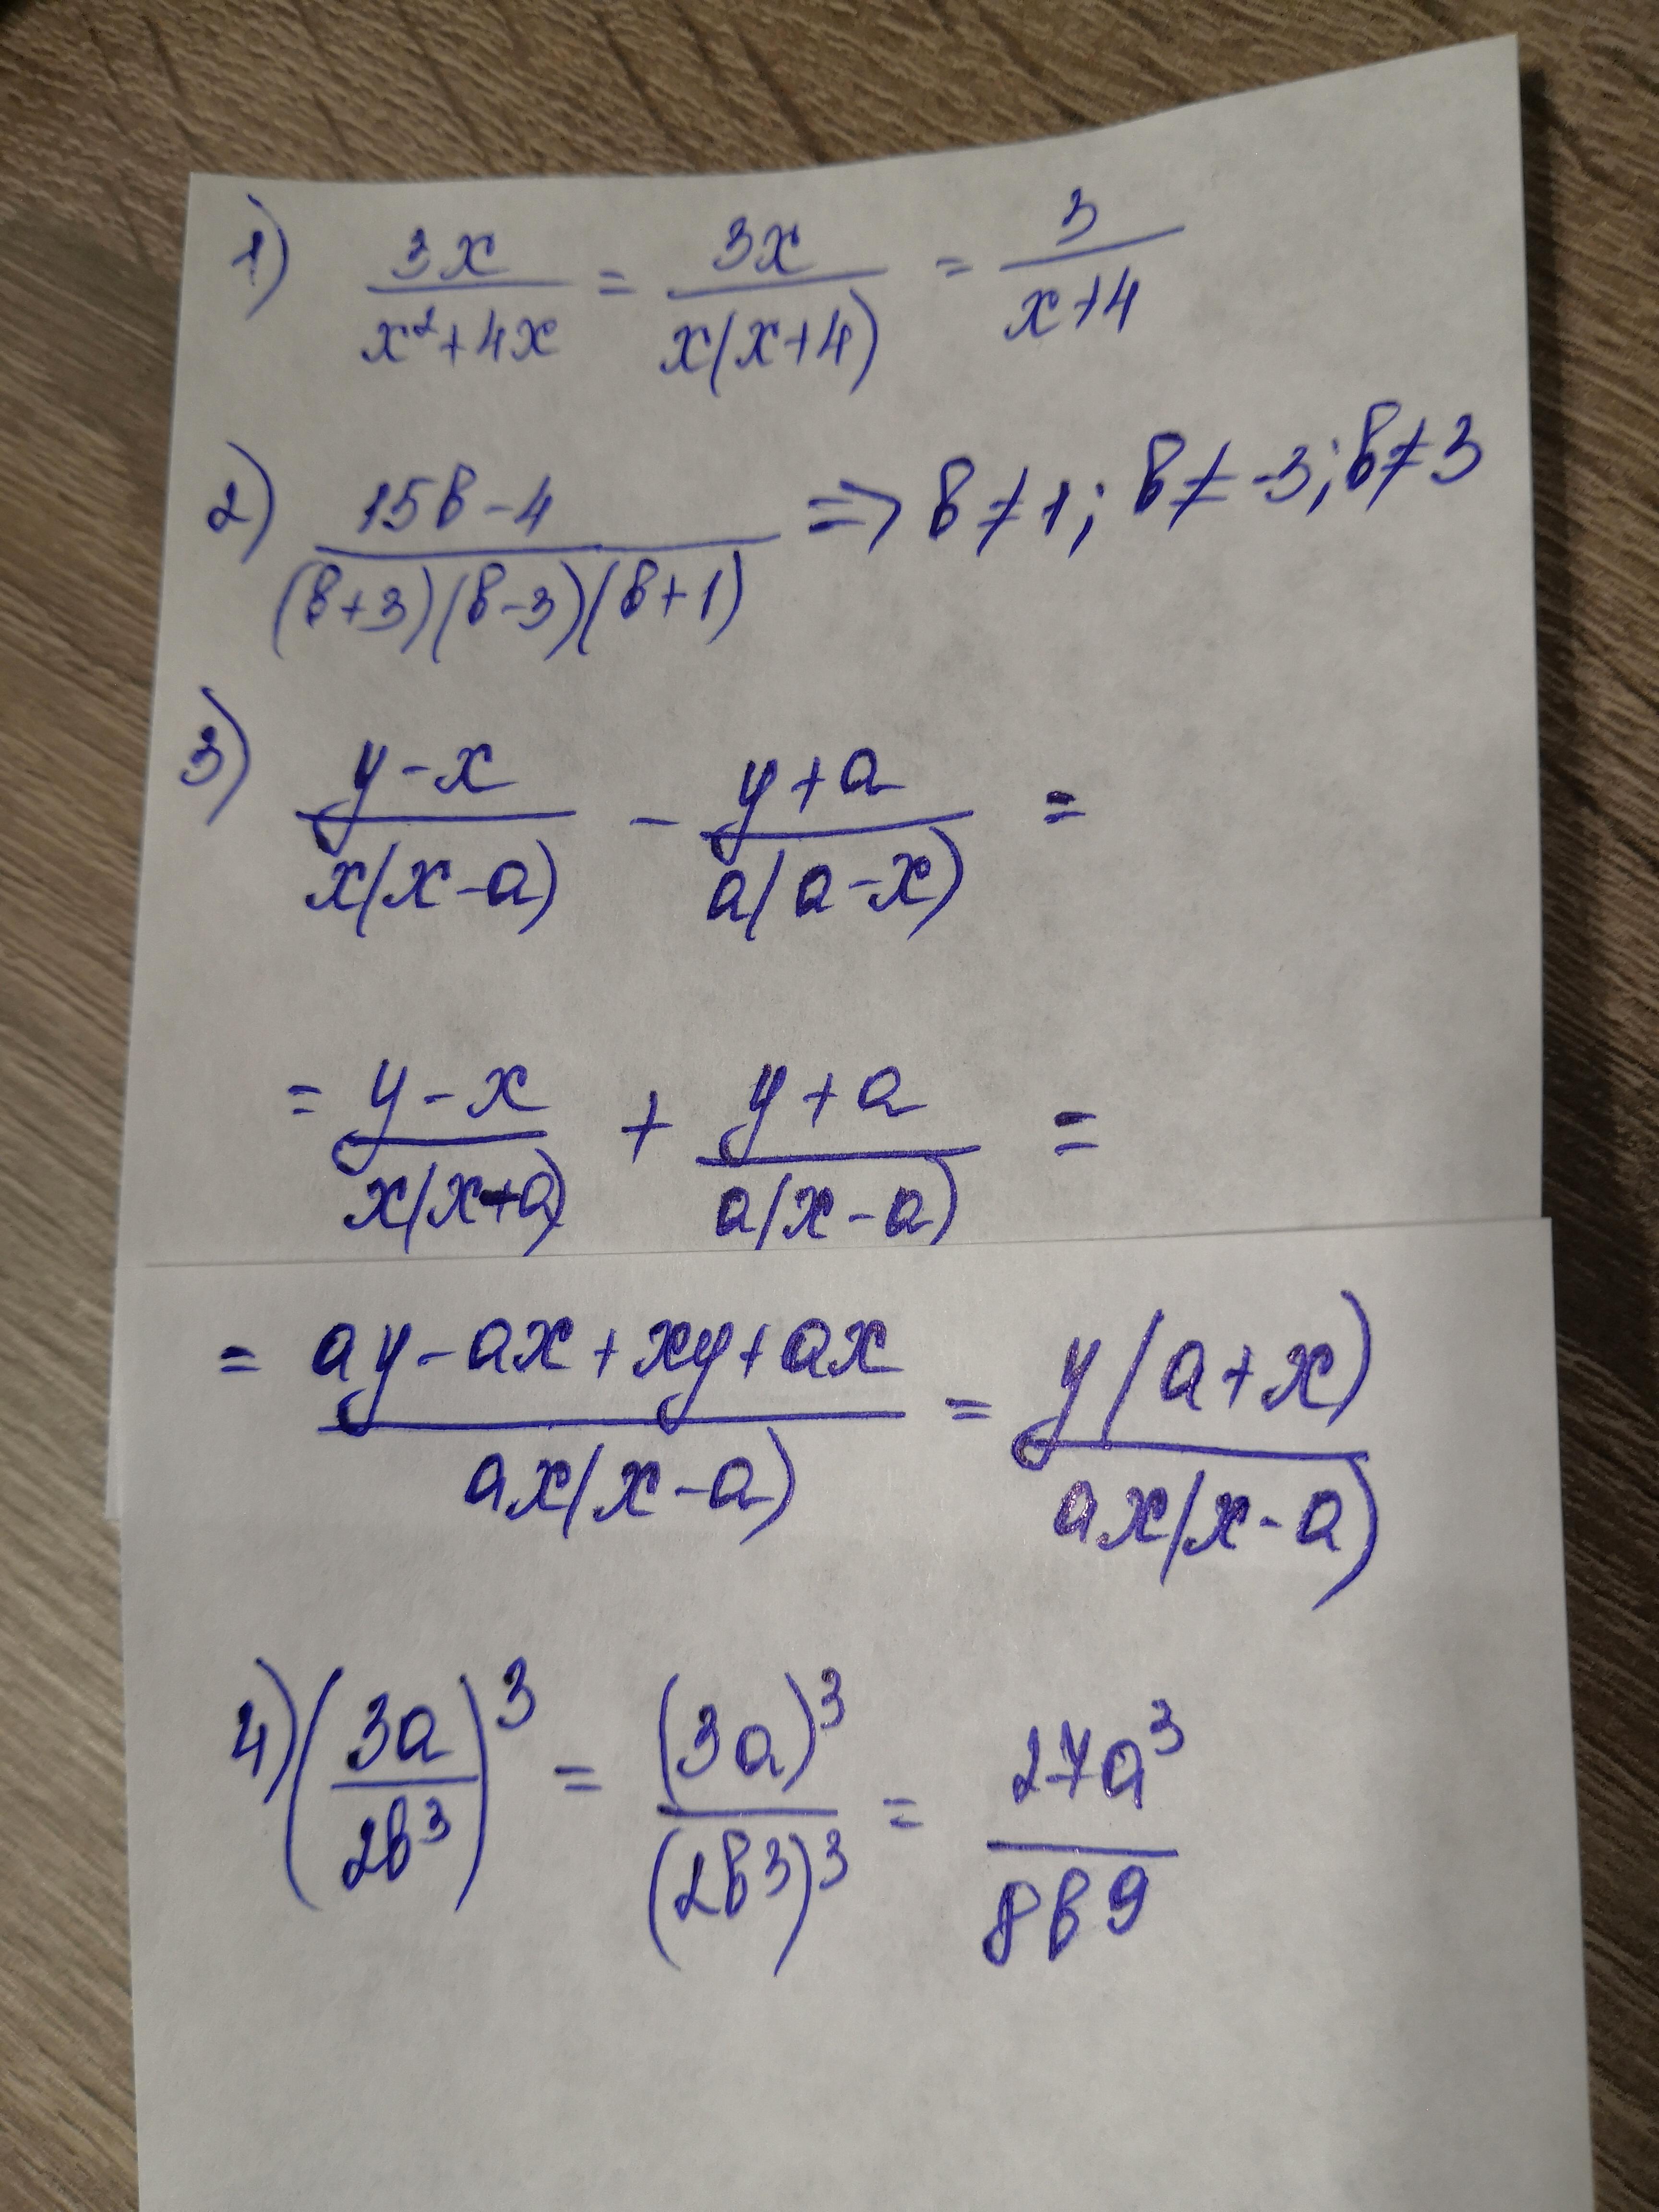 1) 3x/(x²+4x) = 3x/(x(x+4)) = 3/(x+4)
2) (15в-4)/((в+3)(в-3)(в+1)) => в≠1; в≠-3; в≠3
3) (y-x)/(x(x-a)) - (y+a)/(a(a-x)) =
= (y-x)/(x(x+a)) + (y+a)/(a(x-a)) =
= (ay-ax+xy+ax)/(ax(x-a)) = y(a+x)/(ax(x-a))
4) (3a/2в³)³ = (3a)³/(2в³)³ = 27a³/8в9